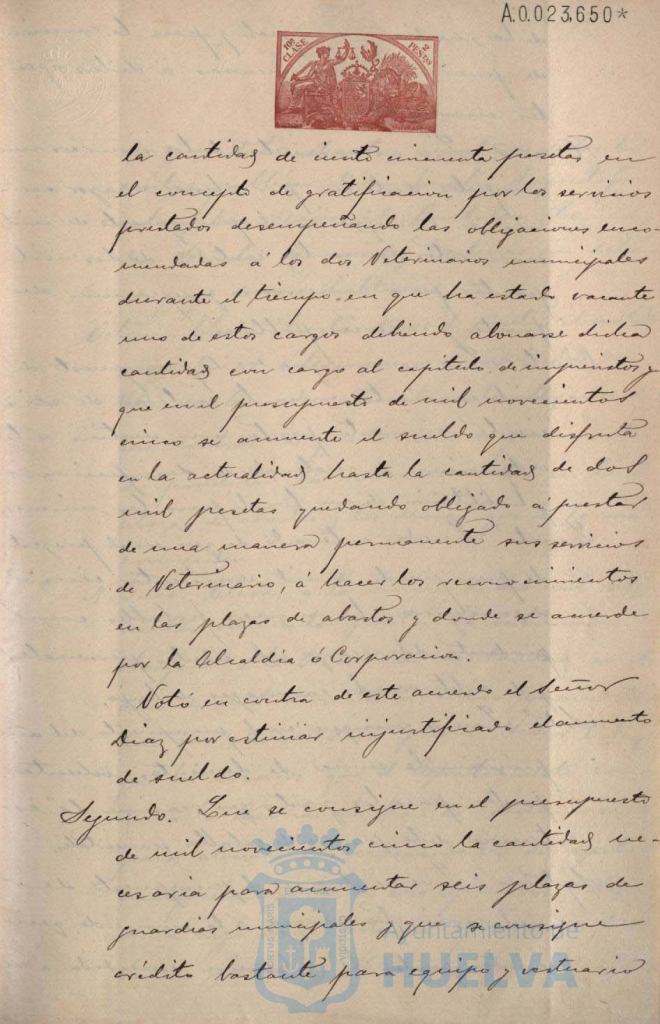 A.0.023,650*
10ª CLASE 2 PESETAS
la cantidad de ciento cincuenta pesetas en
el concepto de gratificacion por los servicios
prestados desempeñando las obligaciones enco-
mendadas á los dos Veterinarios municipales
durante el tiempo en que ha estado vacante
uno de estos cargos debiendo abonarse dicha
cantidad con cargo al capitulo de imprevistos y
que en el presupuesto de mil novecientos
cinco se aumente el sueldo que disfruta
en la actualidad hasta la cantidad de dos
mil pesetas quedando obligado á prestar
de una manera permanente sus servicios
de Veterinario, á hacer los reconocimientos
en las plazas de abastos y donde se acuerde
por la Alcaldia ó Corporacion.
Votó en contra de este acuerdo el Señor
Diaz por estimar injustificado el aumento
de sueldo.
Segundo. Que se consigne en el presupuesto
de mil novecientos cinco la cantidad ne-
cesaria para aumentar seis plazas de
guardias municipales y que se consigne
crédito bastante para equipo y vestuario
Ayuntamiento de
HUELVA